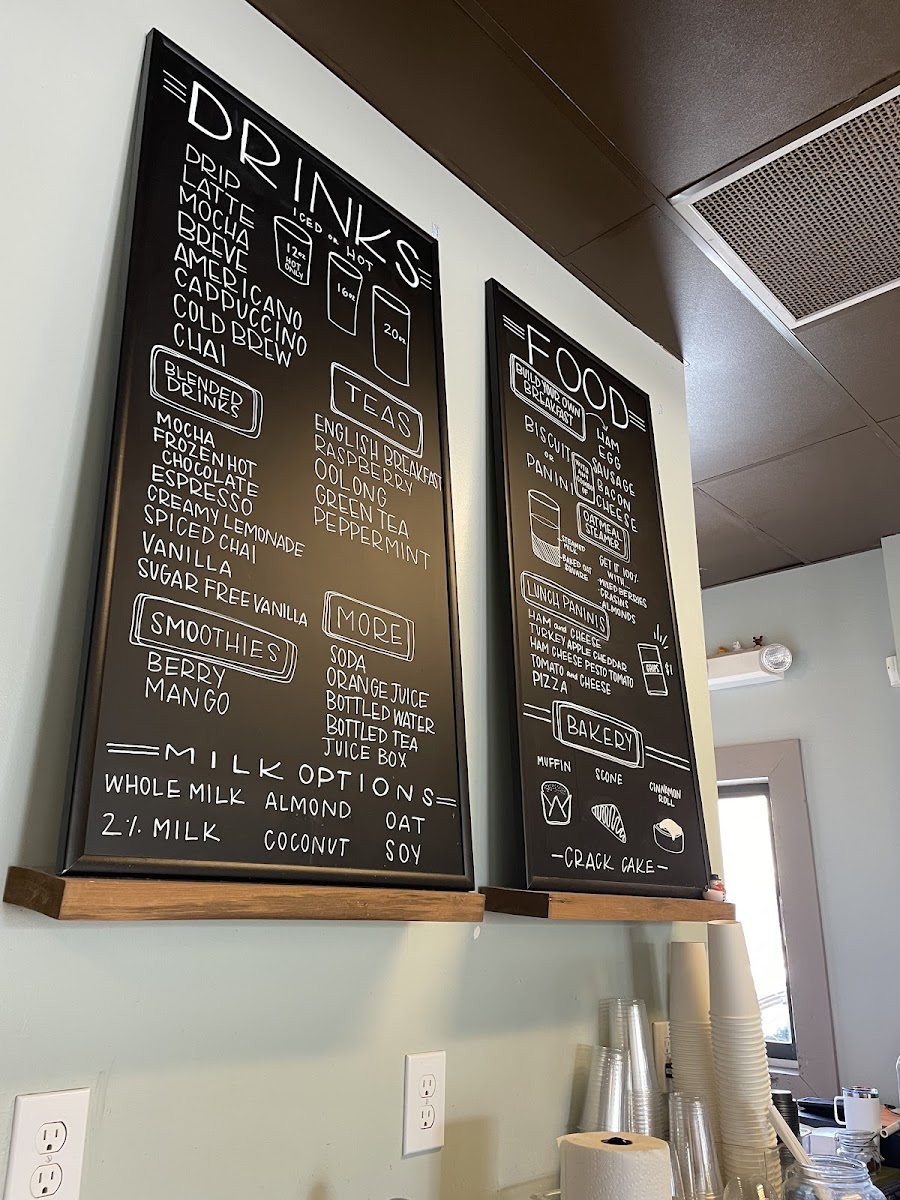 DRINKS
DRIP
LATTE
MOCHA
BREVE
AMERICANO
CAPPUCCINO
COLD BREW
CHAI
ICED OR HOT
12oz
HOT
ONLY
16oz
20oz
BLENDED
DRINKS
MOCHA
FROZEN HOT
CHOCOLATE
ESPRESSO
CREAMY LEMONADE
SPICED CHAI
VANILLA
SUGAR FREE VANILLA
TEAS
ENGLISH BREAKFAST
RASPBERRY
OOLONG
GREEN TEA
PEPPERMINT
SMOOTHIES
BERRY
MANGO
MORE
SODA
ORANGE JUICE
BOTTLED WATER
BOTTLED TEA
JUICE BOX
MILK OPTIONS
WHOLE MILK ALMOND OAT
2% MILK COCONUT SOY
FOOD
BUILD YOUR OWN
BREAKFAST
BISCUIT
OR
PANINI
HAM
EGG
SAUSAGE
BACON
CHEESE
OATMEAL
STEAMER
STEAMED
MILK
BAKED OAT
SQUARE
GET IT 100%
WITH
-MIXED BERRIES
-CRASINS
-ALMONDS
LUNCH PANINIS
HAM and CHEESE
TURKEY APPLE CHEDDAR
HAM CHEESE PESTO TOMATO
TOMATO and CHEESE
PIZZA
CHIPS
$1
BAKERY
MUFFIN
SCONE
CINNAMON
ROLL
-CRACK CAKE-